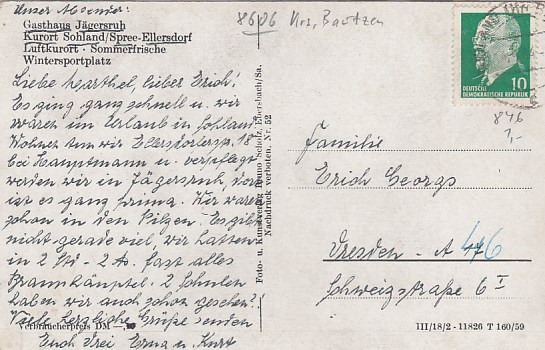 Unser Absender:
Gasthaus Jägersruh
Kurort Sohland/Spree-Ellersdorf
Luftkurort · Sommerfrische
Wintersportplatz
8606 Krs. Bautzen
Liebe Marthel, lieber Erich!
Es ging ganz schnell u. wir
waren im Urlaub in Sohland.
Wohnen tun wir Ellersdorferstr. 18
bei Hauptmann u. verpflegt
werden wir in Jägersruh, dort
ist es ganz prima. Wir waren
schon in den Pilzen. Es gibt
nicht gerade viel, wir hatten
in 2 Std - 2 fast alles
Braunhäuptel. 2
haben wir auch schon gesehen!
Viele herzliche Grüße senden
Euch Drei Erna u. Kurt
Verbraucherpreis DM
Foto- u. Kunstverlag Bruno Scholz, Ebersbach/Sa.
Nachdruck verboten. Nr. 52
10
DEUTSCHE
DEMOKRATISCHE REPUBLIK
846
1,-
Familie
Erich Georgs
Dresden - A
46
Schweizstraße 6 I
III/18/2 - 11826 T 160/59